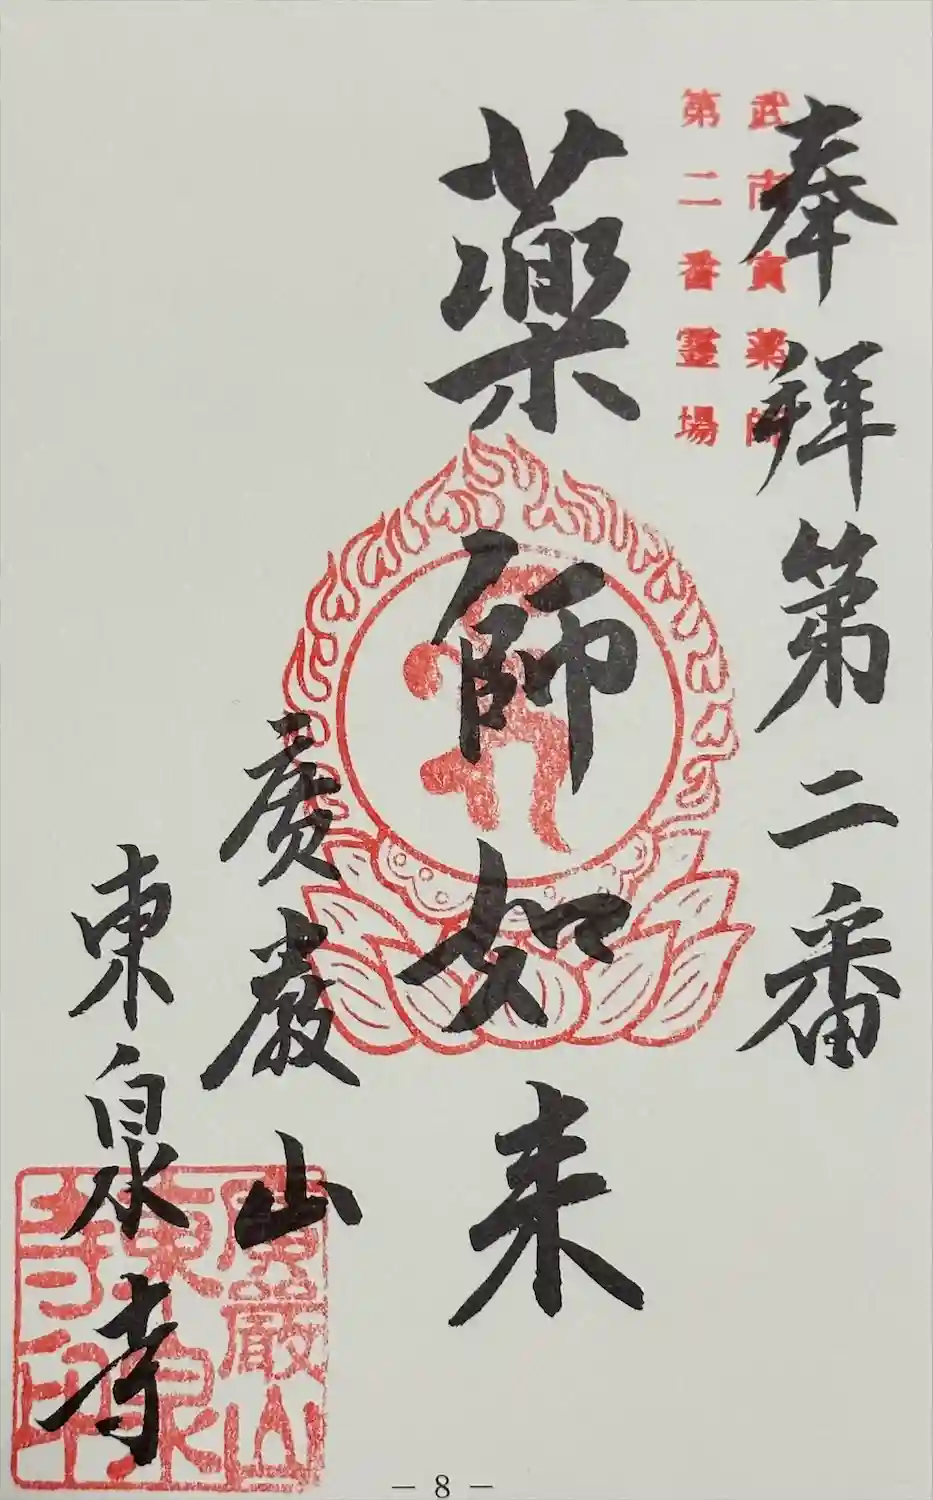 奉拝第二番
武南寅薬師
第二番霊場
薬師如来
廣巌山
東泉寺
廣巌山
東泉
寺印
－ 8 －